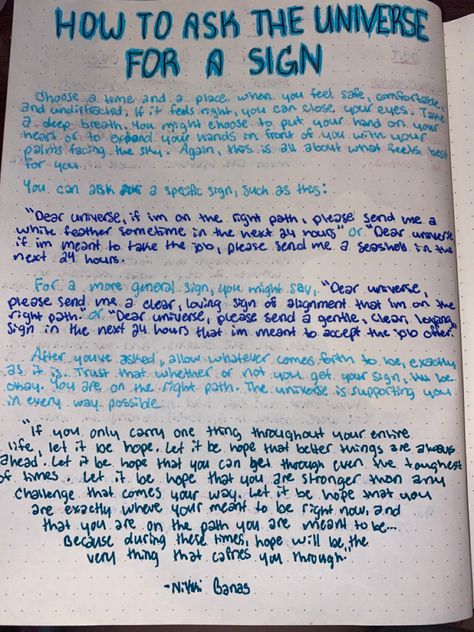 HOW TO ASK THE UNIVERSE
FOR A SIGN
Choose a time and a place when you feel safe, comfortable,
and undistracted. If it feels right, you can close your eyes. Take
a deep breath. You might choose to put your hand on your
heart or to extend your hands in front of you with your
palms facing the sky. Again, this is all about what feels best
for you.
You can ask for a specific sign, such as this:
"Dear universe, if im on the right path, please send me a
white feather sometime in the next 24 hours" or "Dear universe
if im meant to take the job, please send me a seashell in the
next 24 hours.
For a more general sign, you might say, "Dear universe,
please send me a clear, loving sign of alignment that im on the
right path" or "Dear universe, please send a gentle, clear, loving
sign in the next 24 hours that im meant to accept the job offer."
After you've asked, allow whatever comes forth to be, exactly
as it is. Trust that whether or not you get your sign, itll be
okay. You are on the right path. The universe is supporting you
in every way possible.
"If you only carry one thing throughout your entire
life, let it be hope. Let it be hope that better things are always
ahead. Let it be hope that you can get through even the toughest
of times. Let it be hope that you are stronger than any
challenge that comes your way. Let it be hope that you
are exactly where your meant to be right now, and
that you are on the path you are meant to be...
Because during these times, hope will be the
very thing that carries you through."
- Nikki Banas